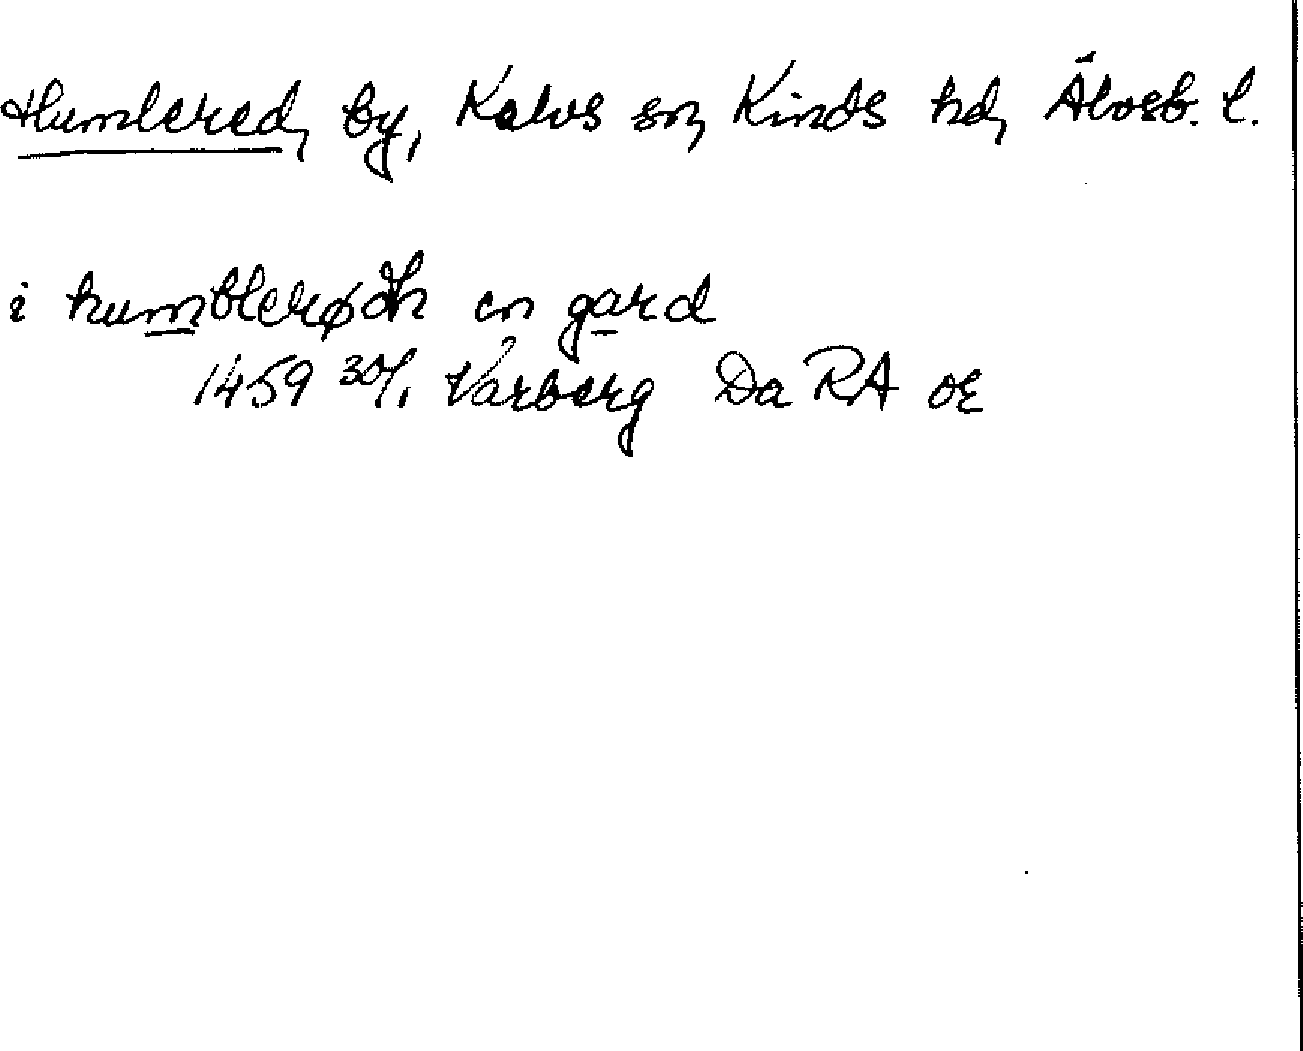 Humlered, by, Kalvs sn, Kinds hd, Älvsb. l.
i humblerødh en gard
1459 30/1 Varberg Da RA oε